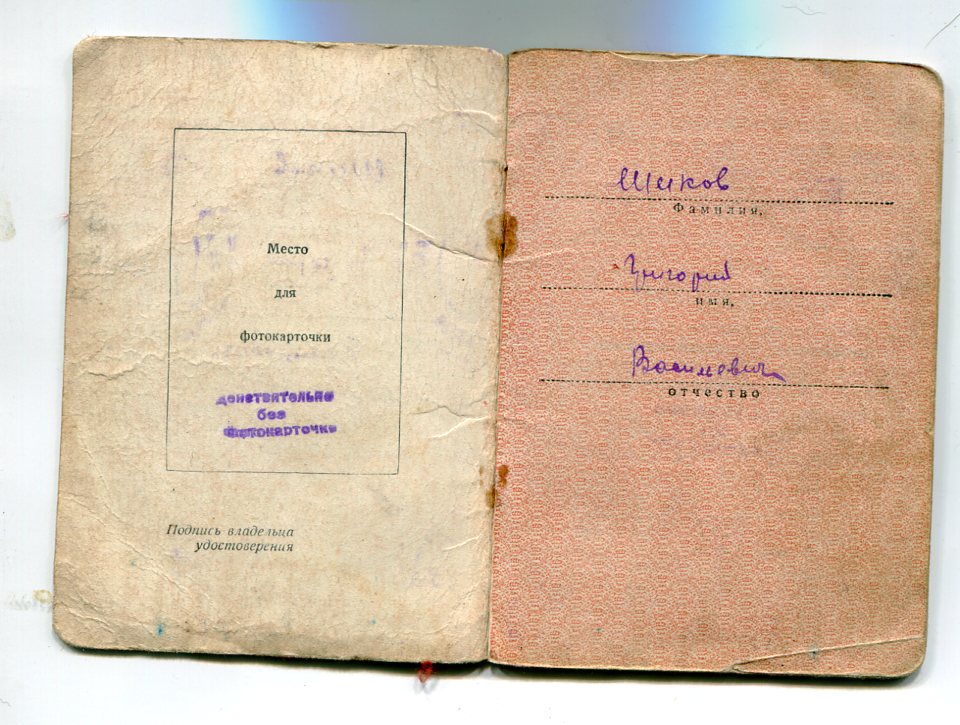 Место
для
фотокарточки
действительно
без
фотокарточки
Подпись владельца
удостоверения
Шиков
Фамилия,
Григорий
имя,
Васильевич
отчество